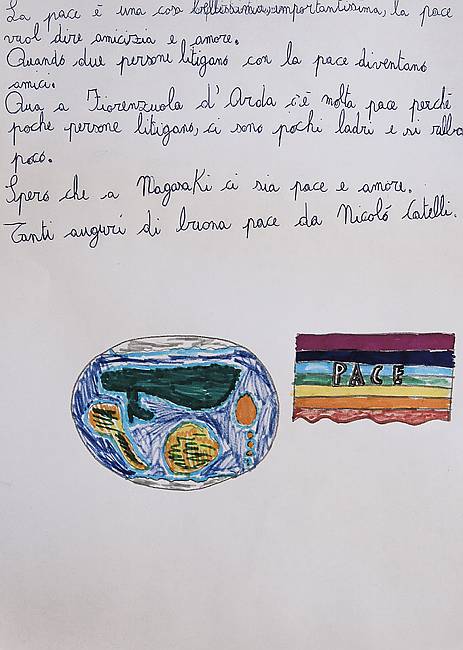 La pace è una cosa bellissima, importantissima, la pace
vuol dire amicizia e amore.
Quando due persone litigano con la pace diventano
amici.
Qua a Fiorenzuola d'Arda c'è molta pace perché
poche persone litigano, ci sono pochi ladri e si ruba
poco.
Spero che a Nagasaki ci sia pace e amore.
Tanti auguri di buona pace da Nicoló Catelli.
PACE